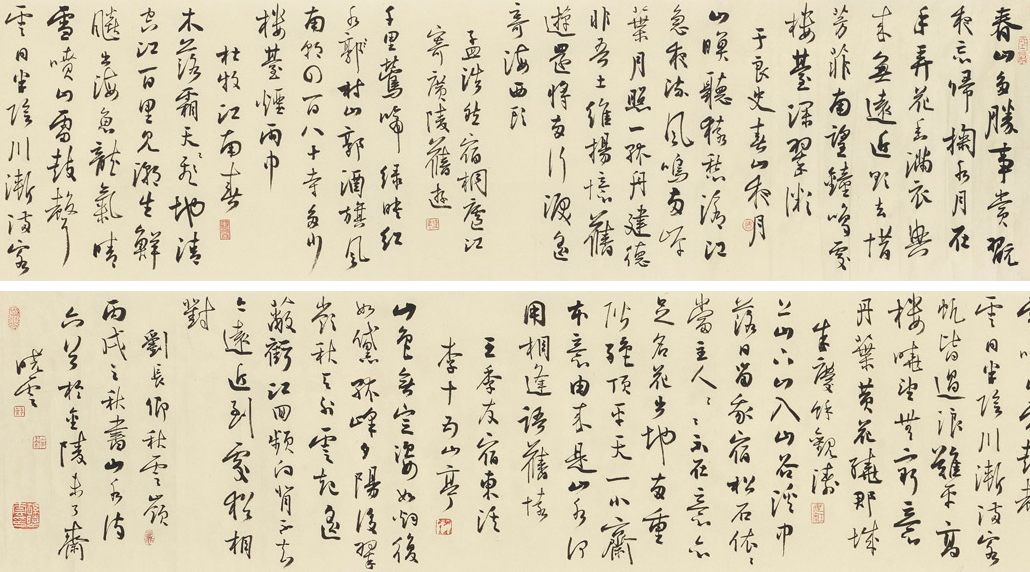 春山多勝事賞翫
夜忘歸掬水月在
手弄花香滿衣興
来無遠近欲去惜
芳菲南望鐘鳴處
樓臺深翠微
于良史春山夜月
山暝聽猿愁滄江
急夜流風鳴兩岸
葉月照一孤舟建德
非吾土維揚憶舊
遊還將兩行淚遙
寄海西頭
孟浩然宿桐廬江
寄廣陵舊遊
千里鶯啼綠映紅
水郭村山郭酒旗風
南朝四百八十寺多少
樓臺煙雨中
杜牧江南春
木落霜天飛地清
空江百里見潮生鮮
飈出海魚龍氣晴
雪噴山雷鼓聲
雲日半陰川漸滿客
雲日半陰川漸滿客
帆皆過浪難平高
樓曉望無窮意
丹葉黃花繞郡城
朱慶餘觀濤
上山下山入山谷溪中
落日留我宿松石依依
當主人主人不在意亦
足名花出地兩重
階絕頂平天一小齋
本意由来是山水何
用相逢語舊懷
王季友宿東溪
李十五山亭
山色無定姿如煙復
如黛孤峰夕陽後翠
嶺秋天外雲起遙
蔽虧江回頻向背不知
今遠近到處猶相
對
劉長卿秋雲嶺
丙戌之秋書山水詩
六首於金陵未了齋
曉雲